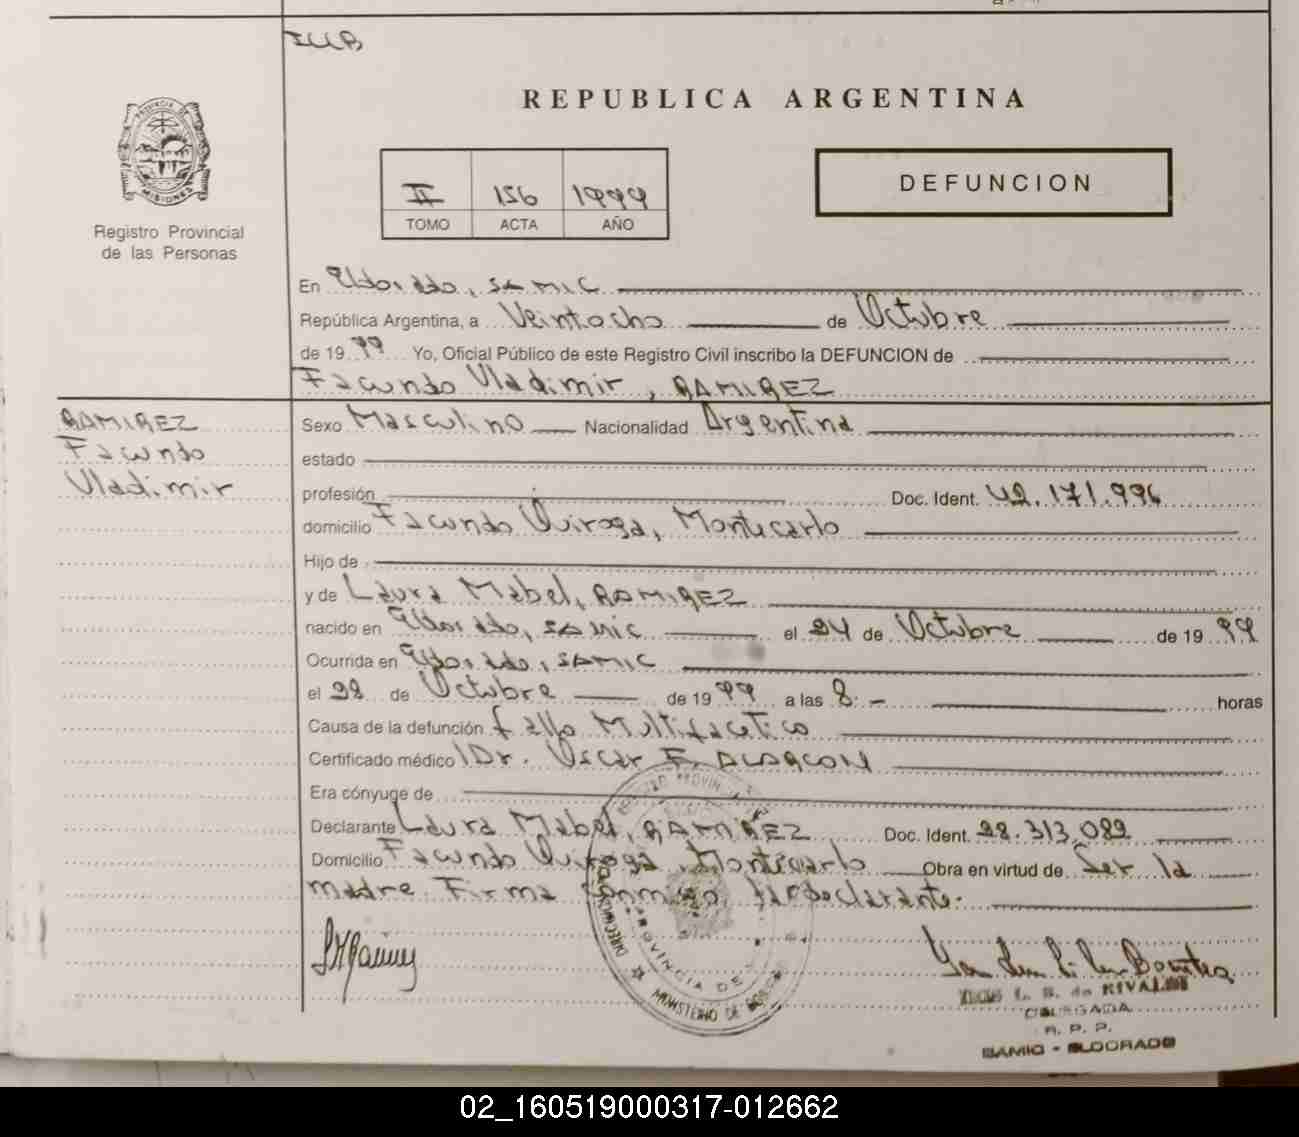 REPUBLICA ARGENTINA
PROVINCIA DE
MISIONES
Registro Provincial
de las Personas
II 156 1999
TOMO ACTA AÑO
DEFUNCION
En Eldorado, SAMIC
República Argentina, a Veintocho de Octubre
de 19 99 Yo, Oficial Público de este Registro Civil inscribo la DEFUNCION de
Facundo Vladimir, RAMIREZ
RAMIREZ
Facundo
Vladimir
Sexo Masculino Nacionalidad Argentina
estado
profesión Doc. Ident. 42.171.996
domicilio Facundo Quiroga, Montecarlo
Hijo de
y de Laura Mabel, RAMIREZ
nacido en Eldorado, SAMIC el 24 de Octubre de 19 99
Ocurrida en Eldorado, SAMIC
el 28 de Octubre de 19 99 a las 8.- horas
Causa de la defunción fallo Multifacetico
Certificado médico Dr. Oscar F. ALARCON
Era cónyuge de
Declarante Laura Mabel, RAMIREZ Doc. Ident. 28.313.082
Domicilio Facundo Quiroga, Montecarlo Obra en virtud de Ser la
madre. Firma conmigo la declarante.
PROVINCIA DE
MINISTERIO DE
L. B. de RIVALDI
DELEGADA
R. P. P.
SAMIC - ELDORADO
02_160519000317-012662